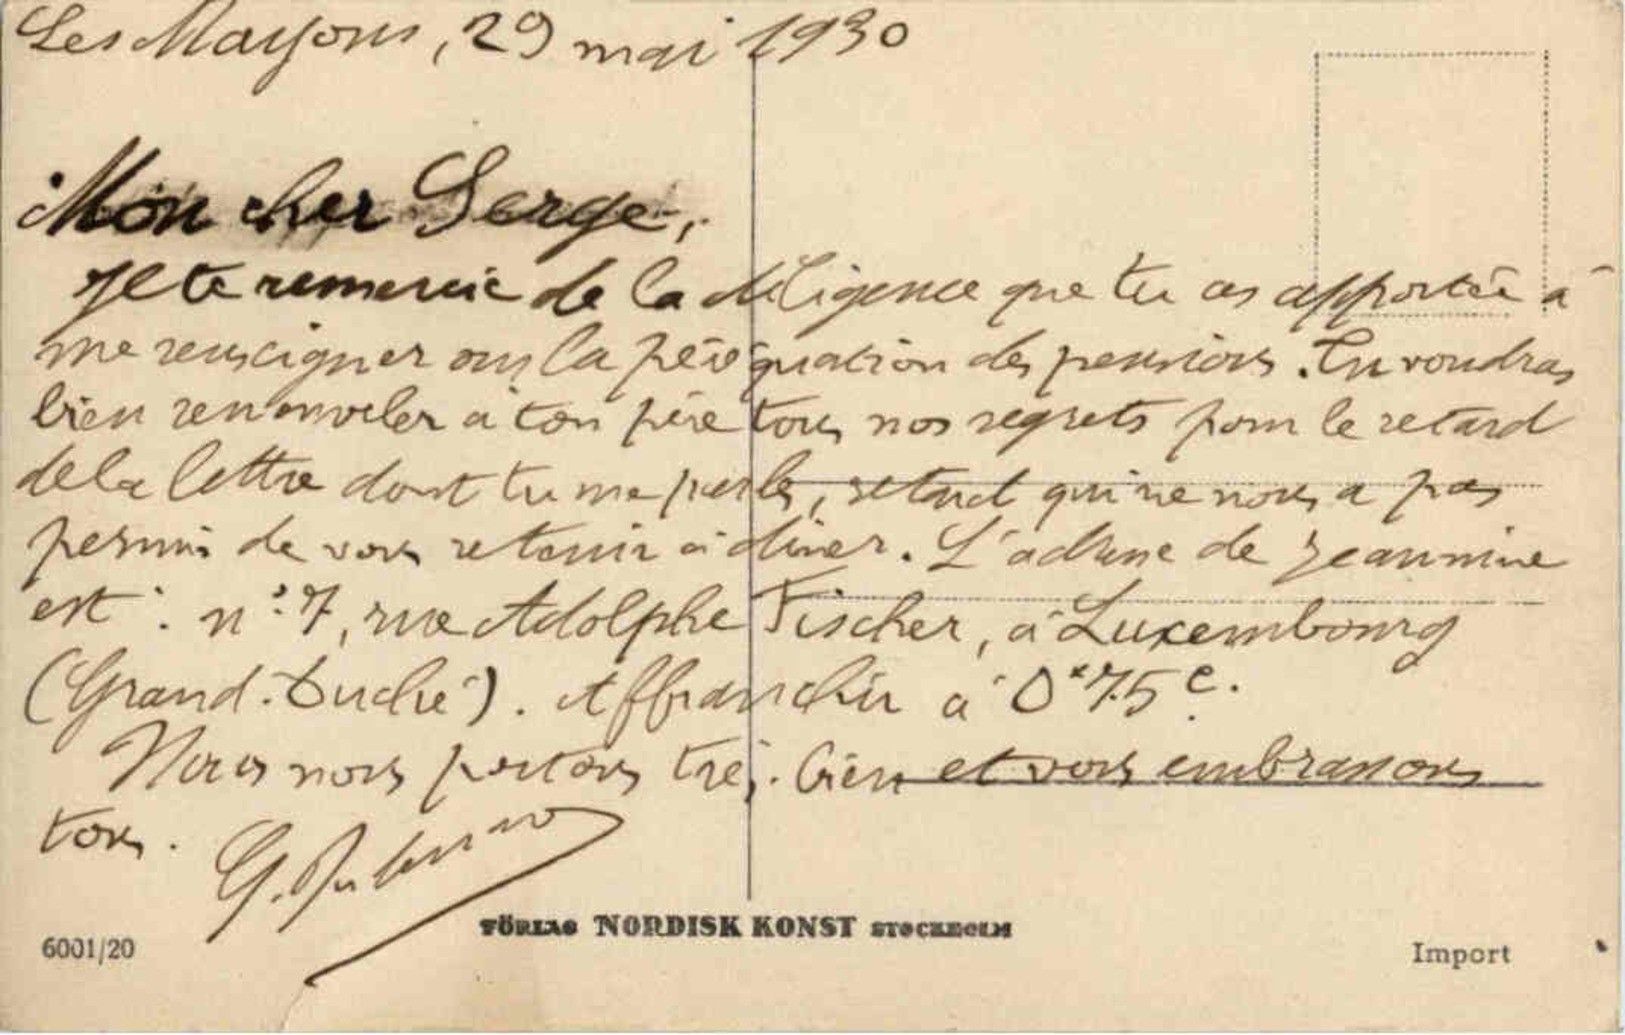 Les Mayons, 29 mai 1930
Mon cher Serge,
Je te remercie de la diligence que tu as apportée à
me renseigner sur la péréquation des pensions. Tu voudras
bien renouveler à ton père tous nos regrets pour le retard
de la lettre dont tu me parles, retard qui ne nous a pas
permis de vous retenir à dîner. L'adresse de Jeannine
est : n° 7, rue Adolphe Fischer, à Luxembourg
(Grand-Duché). Affranchir à 0f75c.
Nous nous portons très bien et vous embrassons
tous.
G.
FÖRLAG NORDISK KONST STOCKHOLM
6001/20
Import